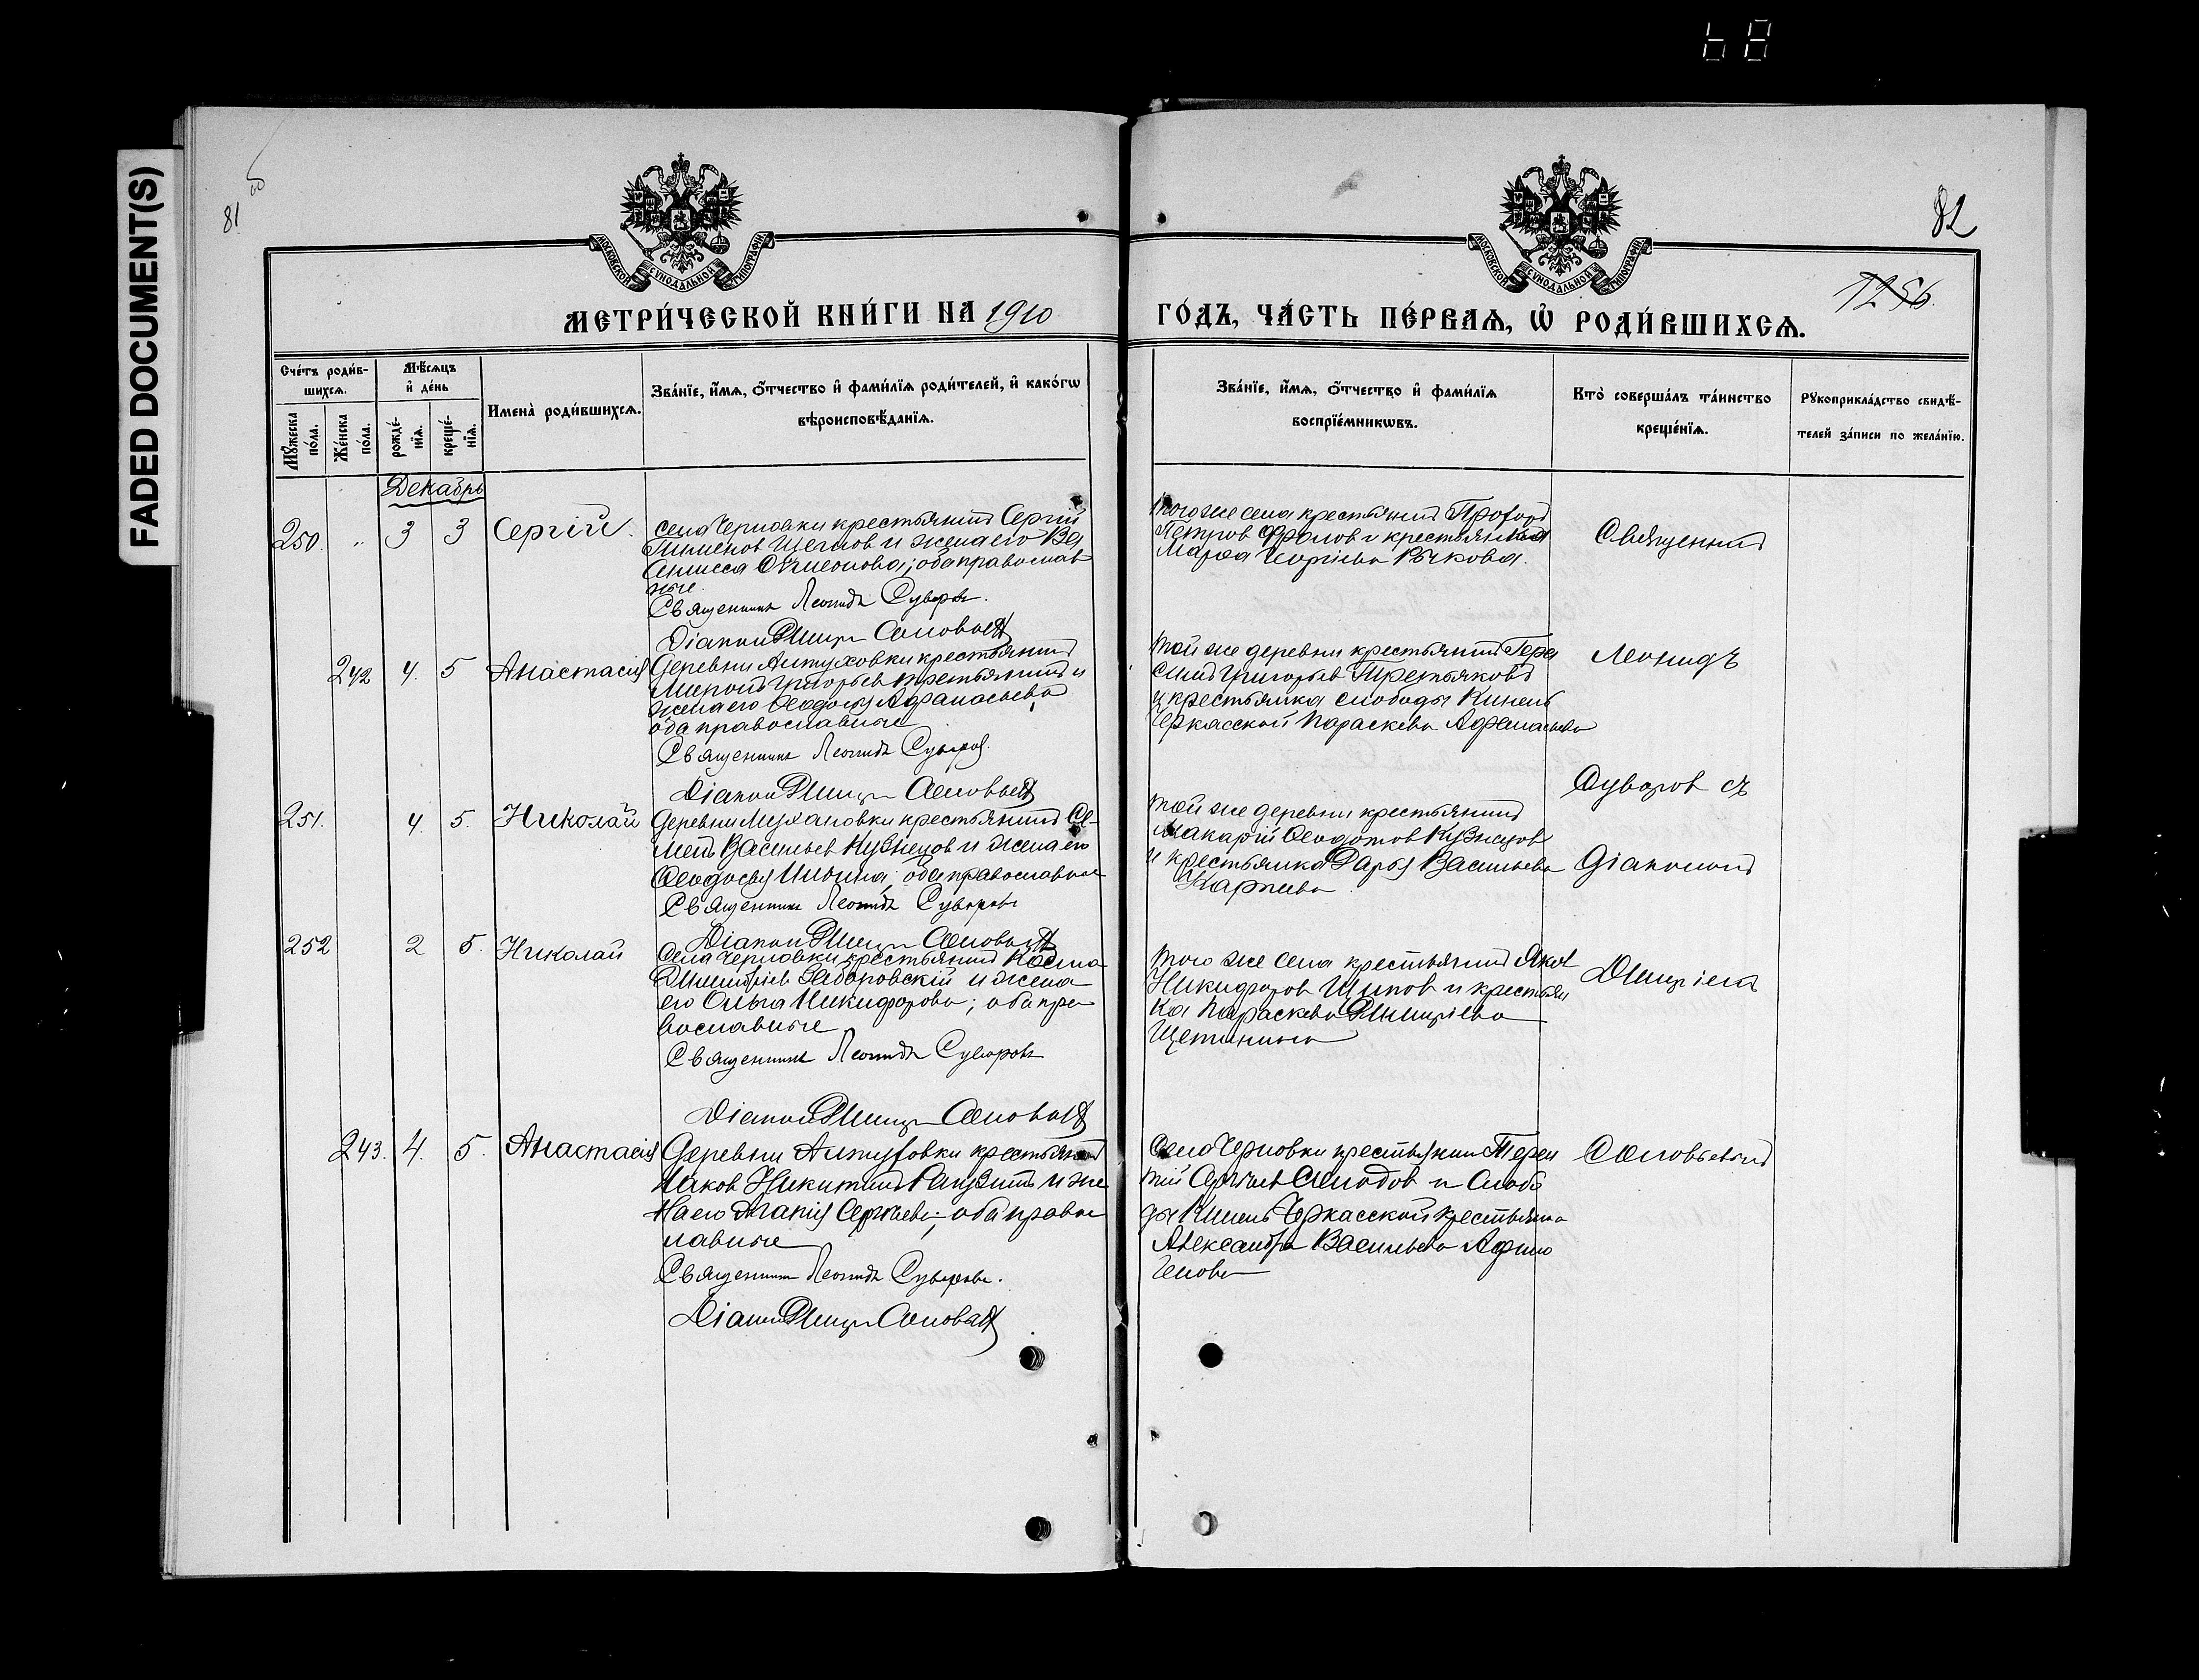 FADED DOCUMENT(S)
81 об
82
1256.
МОСКОВСКОЙ СѴНОДАЛЬНОЙ ТИПОГРАФІИ.
МОСКОВСКОЙ СѴНОДАЛЬНОЙ ТИПОГРАФІИ.
МЕТРИ́ЧЕСКОЙ КНИ́ГИ НА 1910
ГО́ДЪ, ЧА́СТЬ ПЕ́РВАѦ, Ѡ҆ РОДИ́ВШИХСѦ.
Сче́тъ роди́в-
шихсѧ.
Мꙋ́жеска по́ла.
Же́нска по́ла.
Мѣ́сѧцъ и҆ де́нь
рожде́-нїѧ.
креще́-нїѧ.
Имена̀ роди́вшихсѧ.
Зва́нїе, и҆́мѧ, ѻ҆́тчество и҆ фами́лїѧ роди́телей, и҆ како́гѡ
вѣроисповѣ́данїѧ.
Зва́нїе, и҆́мѧ, ѻ҆́тчество и҆ фами́лїѧ
воспрїе́мникѡвъ.
Кто̀ соверша́лъ та́инство
креще́нїѧ.
Рꙋкоприкла́дство свидѣ́-
телей за́писи по жела́нїю.
Декабрь
250. " 3 3 Сергій.
села Черновки крестьянинъ Сергій
Пименов Щеглов и жена его
обе православ
ные.
Священникъ Леонидъ Суворовъ.
Діаконъ Димитр Соловьевъ
того же села крестьянинъ Прохоръ
Петров Фролов и крестьянка
Марѳа Георгіева Рѣчкова.
Священник
242 4. 5 Анастасія
Деревни Алтуховки крестьянинъ
Григорьев Третьяков и
жена его Ѳеодосія Афанасьева
оба православные
Священникъ Леонидъ Суворов.
Діаконъ Димитр Соловьевъ
той же деревни крестьянинъ Гера
симъ Григорьев Третьяковъ
и крестьянка слободы Кинель
Черкасской Параскева Афанасьева
Леонидъ
251. 4. 5. Николай
Деревни Мухановки крестьянинъ Се-
менъ Васильев Кузнецов и жена его
Ѳеодосья Ильина; оба православные
Священникъ Леонидъ Суворовъ
Діаконъ Димитр Соловьевъ
той же деревни крестьянинъ
Макарій Ѳеодотов Кузнецов
и крестьянка Дарья Васильева
Карпева.
Суворов съ
Діаконом
252 2 5. Николай
Села Черновки крестьянинъ Косма
Димитріев Заборовскій и жена
его Ольга Никифорова; оба пра
вославные
Священникъ Леонидъ Суворовъ
Діаконъ Димитр Соловьевъ
того же села крестьянинъ Яков
Никифоров Щипов и крестьян
ка Параскева Димитріева
Щетинина
Димитріем
243. 4. 5. Анастасія
Деревни Алтуховки крестьянинъ
Іаков Никитинъ и же
на его Сергѣева; оба право
славные
Священникъ Леонидъ Суворовъ.
Діаконъ Димитр Соловьевъ
Села Черновки крестьянин Терен
тій Сергѣев Солодов и слобо
ды Кинель Черкасской крестьянка
Александра Васильева Афино
генова
Соловьевымъ